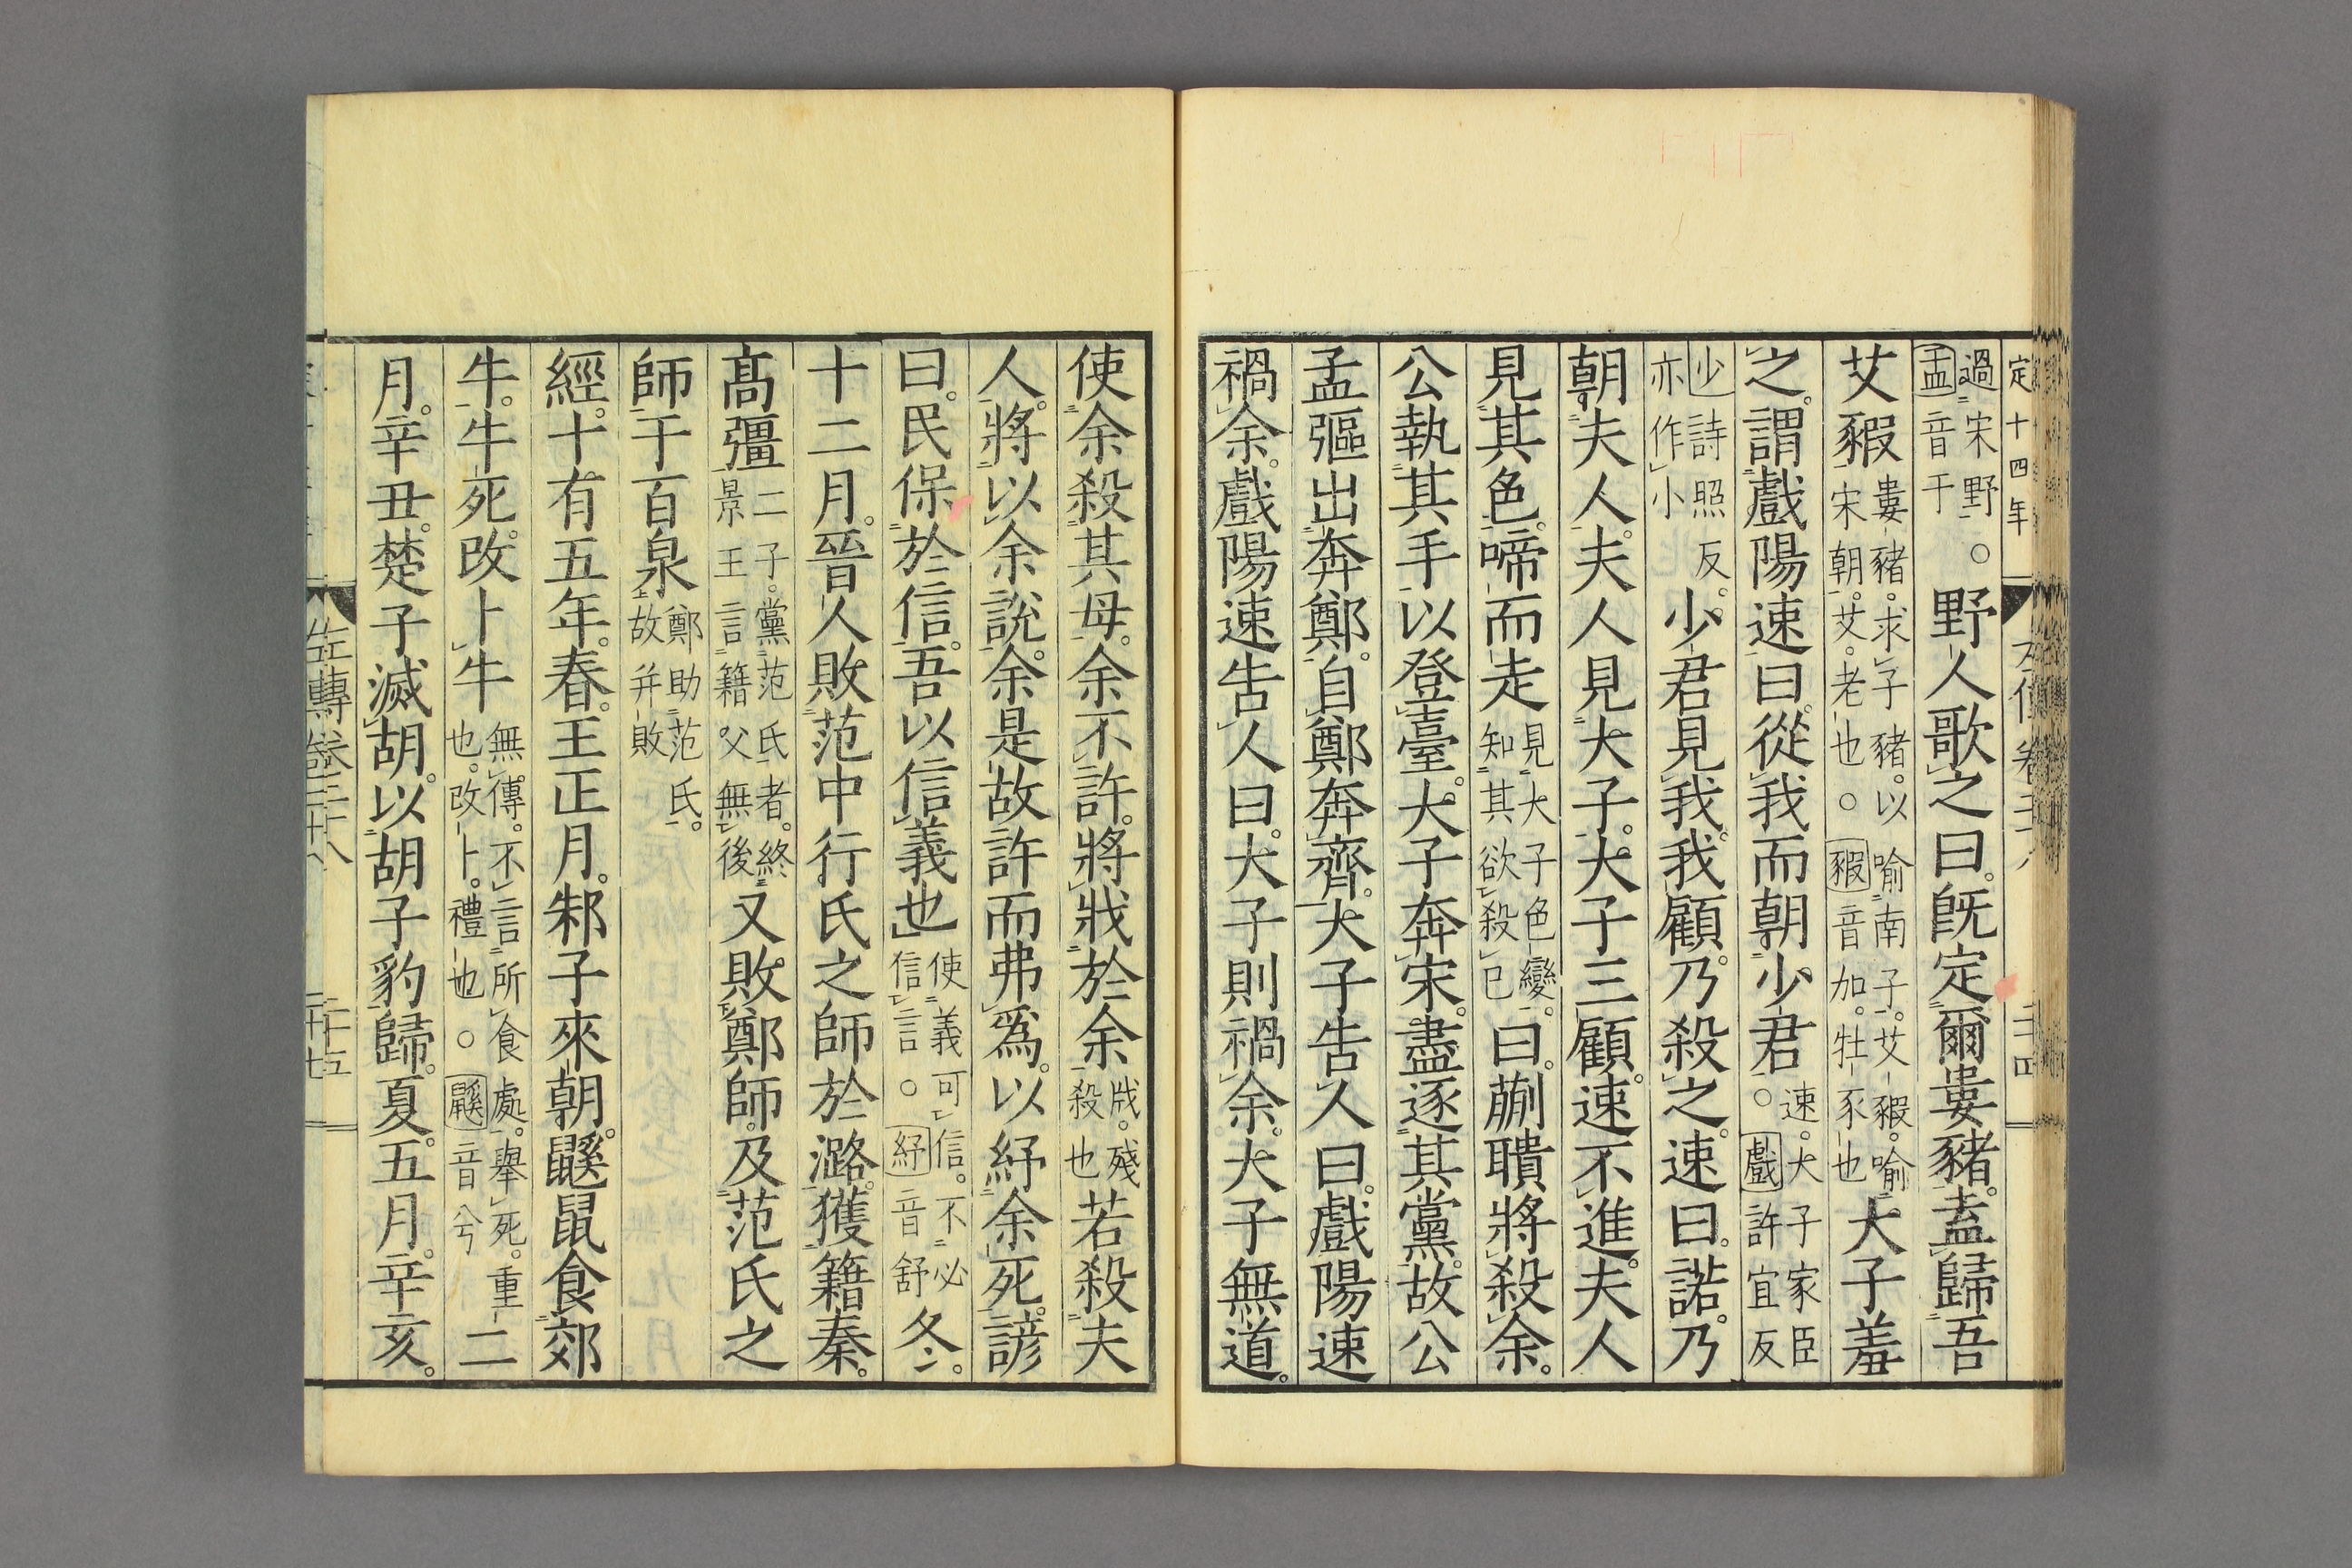 定十四年
過宋野○
盂音于
野人歌之曰。既定爾婁豬。盍歸吾
艾豭
婁豬。求子豬。以喻南子。艾豭。喻
宋朝。艾。老也。○豭音加。牡豕也
大子羞
之。謂戲陽速曰。從我而朝少君
速。大子家臣
○戲許宜反
少詩照反。
亦作小
少君見我。我顧。乃殺之。速曰。諾。乃
朝夫人。夫人見大子。大子三顧。速不進。夫人
見其色。啼而走
見大子色變。
知其欲殺己
曰。蒯聵將殺余。
公執其手以登臺。大子奔宋。盡逐其黨。故公
孟彄出奔鄭。自鄭奔齊。大子告人曰。戲陽速
禍余。戲陽速告人曰。大子則禍余。大子無道。
使余殺其母。余不許。將戕於余
戕。殘
殺也
若殺夫
人。將以余說。余是故許而弗爲。以紓余死。諺
曰。民保於信。吾以信義也
使義可信。不必
信言○紓音舒
冬。
十二月。晉人敗范中行氏之師於潞。獲籍秦。
高彊
二子。黨范氏者。終
景王言籍父無後
又敗鄭師。及范氏之
師于百泉
鄭助范氏。
故并敗
經。十有五年。春。王正月。邾子來朝。鼷鼠食郊
牛。牛死。改卜牛
無傳。不言所食處。舉死。重
也。改卜。禮也○鼷音兮
二
月。辛丑。楚子滅胡。以胡子豹歸。夏。五月。辛亥。
左傳卷二十八